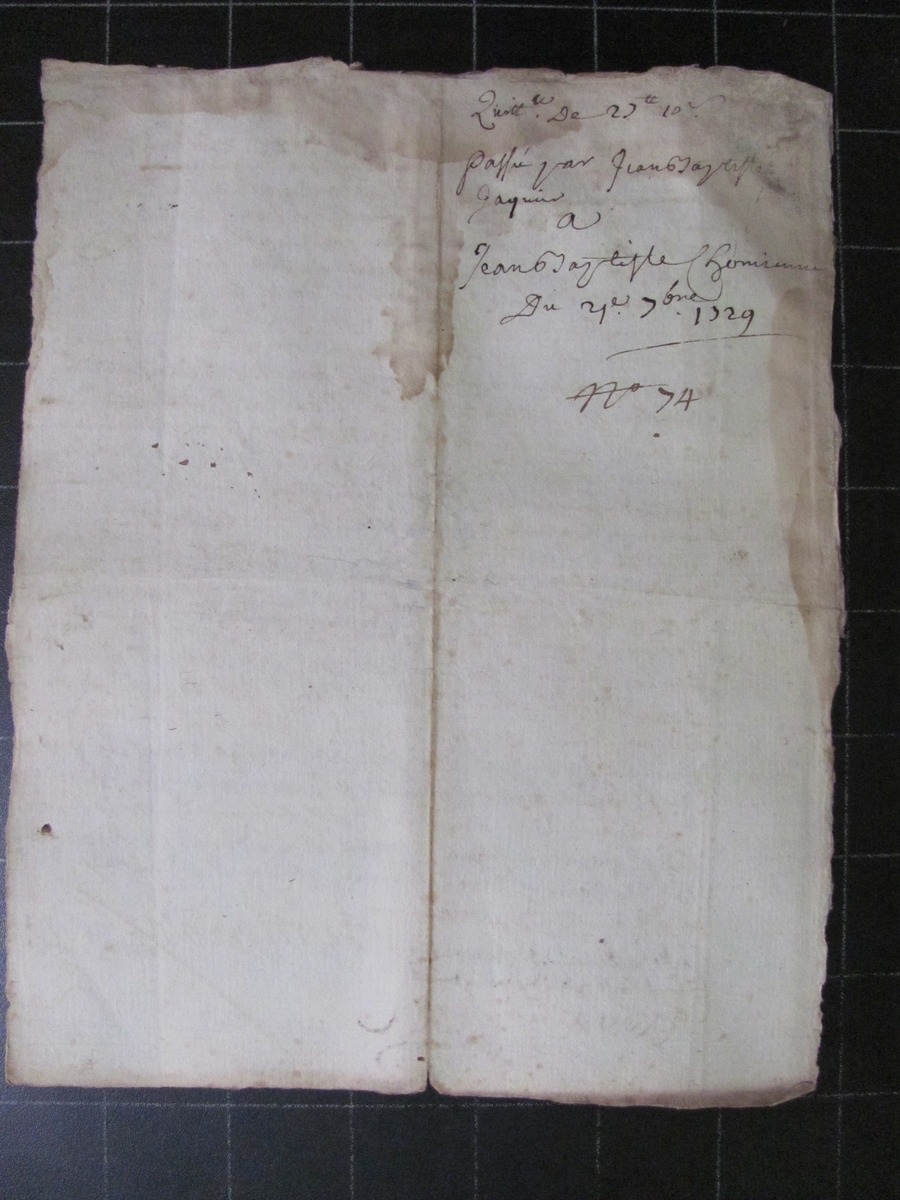 Quitt.ce De 25tt 10s
passé par Jean Baptiste
Jaquier
a
Jean Baptiste Chomienne
Du 21e. 7bre. 1729
No 74